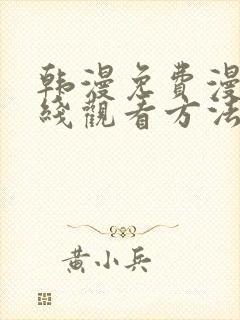 韩漫免費漫
綫觀看方法
黄小兵